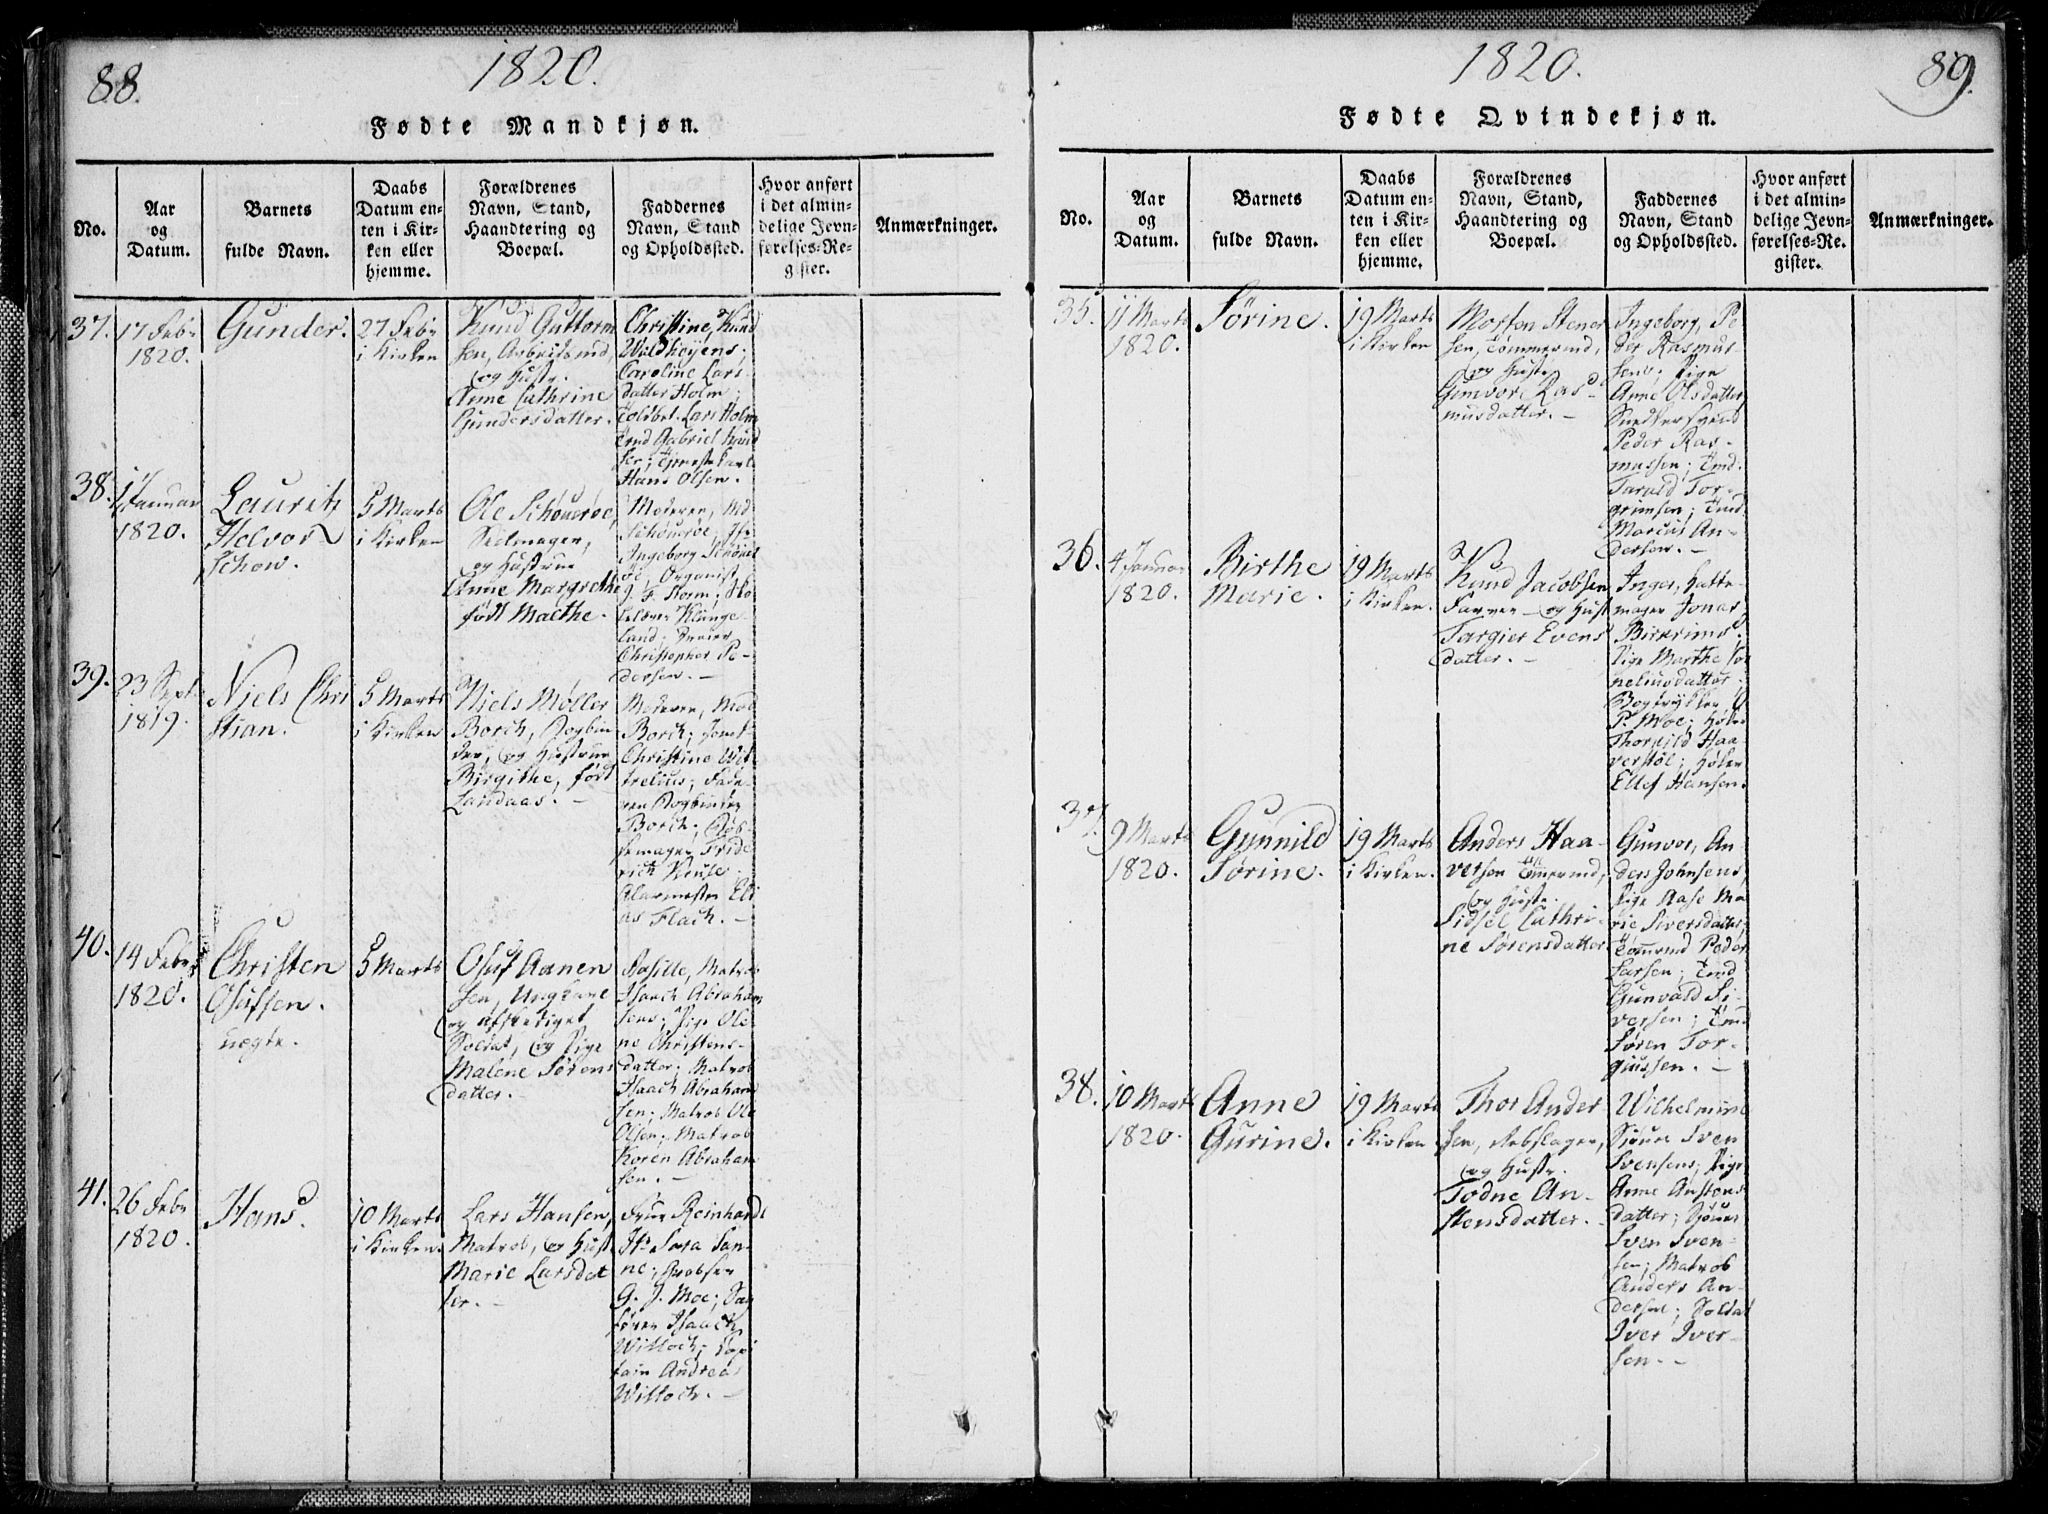 88.
1820.
Fødte Mandkjøn.
No.
Aar
og
Datum.
Barnets
fulde Navn.
Daabs
Datum en-
ten i Kir-
ken eller
hjemme.
Forældrenes
Navn, Stand,
Haandtering og
Boepæl.
Faddernes
Navn, Stand
og Opholdssted.
Hvor anført
i det almin-
delige Jevn-
førelses-Re-
gister.
Anmærkninger.
37.
17 Febr
1820.
Gunder.
27 Febr
i Kirken
Knud Guttorm
sen, Arbeidsmd,
og Hustr.
Anne Cathrine
Gundersdatter.
Christine, Knud
Caroline Lars-
datter Holm;
Lars Holm
Gabriel Knud
sen; Tjenestekarl
Hans Olsen.
38.
17 Januar
1820.
Lauritz
Holvor
Schow.
5 Marts
i Kirken
Ole Schøuerøe,
Seilmager,
og Hustrue
Anne Margrethe
født Malthe.
Moderen, Md
Schøuerøe;
Ingeborg Schøuer
øe, Organist
Storm;
Klunge-
land;
Christopher Pe-
dersen. -
39.
23 Sept
1819.
Niels Chri
stian.
5 Marts
i Kirken
Niels Møller
Borch, Bogbin
der, og Hustrue
Birgithe, født
Landaas. -
Moderen, Mad
Borch; Jomf
Christine Wil
frelius; Fade-
ren Bogbinder
Borch;
Fride
rich
Eli
as Flach. -
40.
14 Febr
1820.
Christen
Olufsen.
uegte.
5 Marts
Oluf Aanen
sen, Ungkarl
og afskediget
Soldat, og Pige
Malene Sørens
datter. -
Matros
Isaach Abraham
sens; Pige Ole
ne Christens-
datter; Matros
Isaach Abraham
sen; Matros Ole
Olsen; Matros
Koren Abraham
sen. -
41.
26 Febr
1820.
Hans.
10 Marts
i Kirken.
Lars Hansen,
Matros, og Hust
Marie Larsdat
ter. -
Frue Reinhardt
Jfr Sara San-
ne;
G. J. Moe;
Isaach
Wittoch; Capi
tain Andreas
Wittoch. -
1820.
89.
Fødte Qvindekjøn.
No.
Aar
og
Datum.
Barnets
fulde Navn.
Daabs
Datum en-
ten i Kir-
ken eller
hjemme.
Forældrenes
Navn, Stand,
Haandtering og
Boepæl.
Faddernes
Navn, Stand
og Opholdssted.
Hvor anført
i det almin-
delige Jevn-
førelses-Re-
gister.
Anmærkninger.
35.
11 Marts
1820.
Sørine.
19 Marts
i Kirken
Morten Stener
sen, Tømmermd,
og Hustr
Gunvor Ras-
musdatter. -
Ingeborg, Pe
der Rasmus-
sens; Pige
Anne Olsdatter
Snedkersvend
Peder Ras-
mussen; Tmd.
Tarald Tor-
grimsen; Tmd
Marcus An-
dersen. -
36.
4 Januar
1820.
Birthe
Marie.
19 Marts
i Kirken.
Knud Jacobsen
Farver - og Hust
Targier Evens
datter. -
Inger, Hatte-
mager Jonas
Birkrims;
Pige Marthe Cor
neliusdatter;
Bogtrykker O
P. Moe; Høker
Thorkild Haa-
verstøl; Høker
Ellef Hansen.
37.
9 Marts
1820.
Gunnild
Sørine.
19 Marts
i Kirken.
Anders Haa-
versen Tømermd,
og Hustr.
Sidsel Cathri-
ne Sørensdatter
Gunvor, An-
ders Johnsens,
Pige Aase Ma
rie Siversdatter;
Tømrmd Peder
Larsen; Tmd
Gunvald Si-
versen; Tmd
Søren Tor-
giussen. -
38.
10 Marts
1820.
Anne
Gurine.
19 Marts
i Kirken
Thor Ander
sen, Rebslager,
og Hustr.
Todne An-
stensdatter. -
Wilhelmine
Sjouer Sven
Svensens; Pige
Anne Anstens
datter; Sjouer
Sven Sven-
sen; Matros
Anders An-
dersen; Soldat
Iver Iver-
sen. -